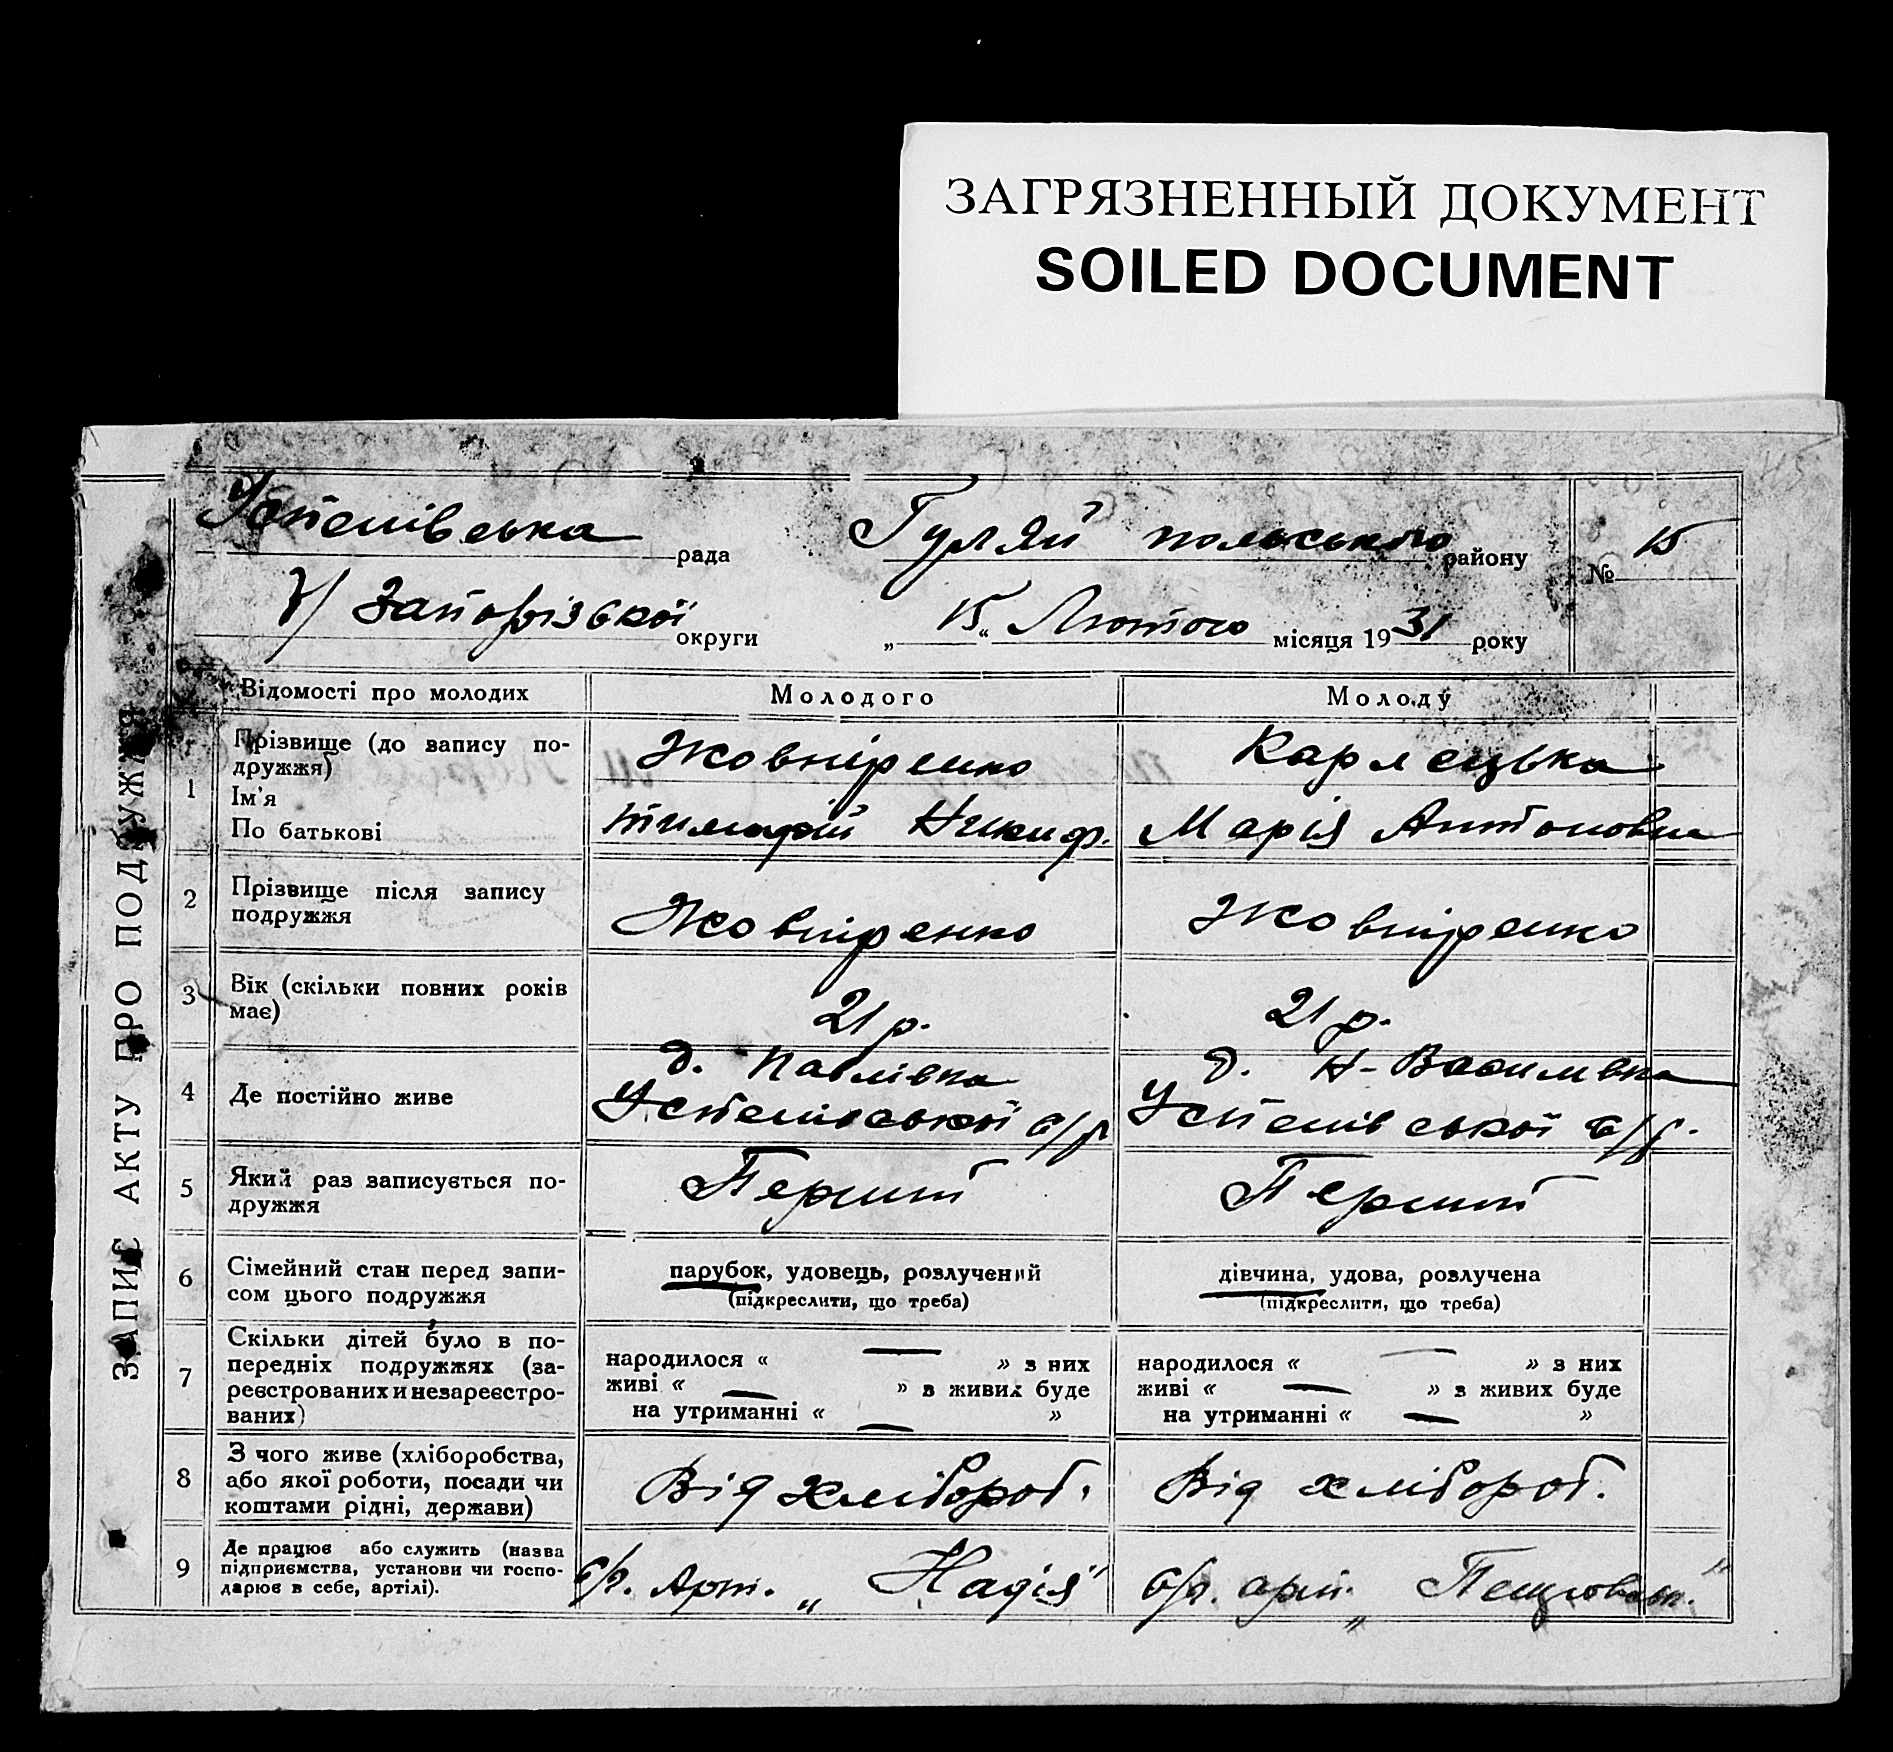 ЗАГРЯЗНЕННЫЙ ДОКУМЕНТ
SOILED DOCUMENT
ЗАПИС АКТУ ПРО ПОДРУЖЖЯ
Успенівська рада Гуляй польського району № 15
Запорізької округи „15“ Лютого місяця 1931 року
Відомості про молодих Молодого Молоду
1 Прізвище (до запису по-
дружжя) Жовніренко Карлецька
Ім'я
По батькові Никиф. Марія Антоновна
2 Прізвище після запису
подружжя Жовніренко Жовніренко
3 Вік (скільки повних років
має) 21 р. 21 р.
4 Де постійно живе д. Павлівка Успенівської с/р д. Н-Василівка Успенівської с/р.
5 Який раз записується по-
дружжя Перший Перший
6 Сімейний стан перед запи-
сом цього подружжя парубок, удовець, розлучений дівчина, удова, розлучена
(підкреслити, що треба) (підкреслити, що треба)
7 Скільки дітей було в по-
передніх подружжях (за-
реєстрованих и незареєстро-
ваних)
народилося « — » з них народилося « — » з них
живі « — » з живих буде живі « — » з живих буде
на утриманні « — » на утриманні « — »
8 З чого живе (хліборобства,
або якої роботи, посади чи
коштами рідні, держави) Від хлібороб. Від хлібороб.
9 Де працює або служить (назва
підприємства, установи чи госпо-
дарює в себе, артілі). с/г. Арт. „Надія" с/г. арт. „